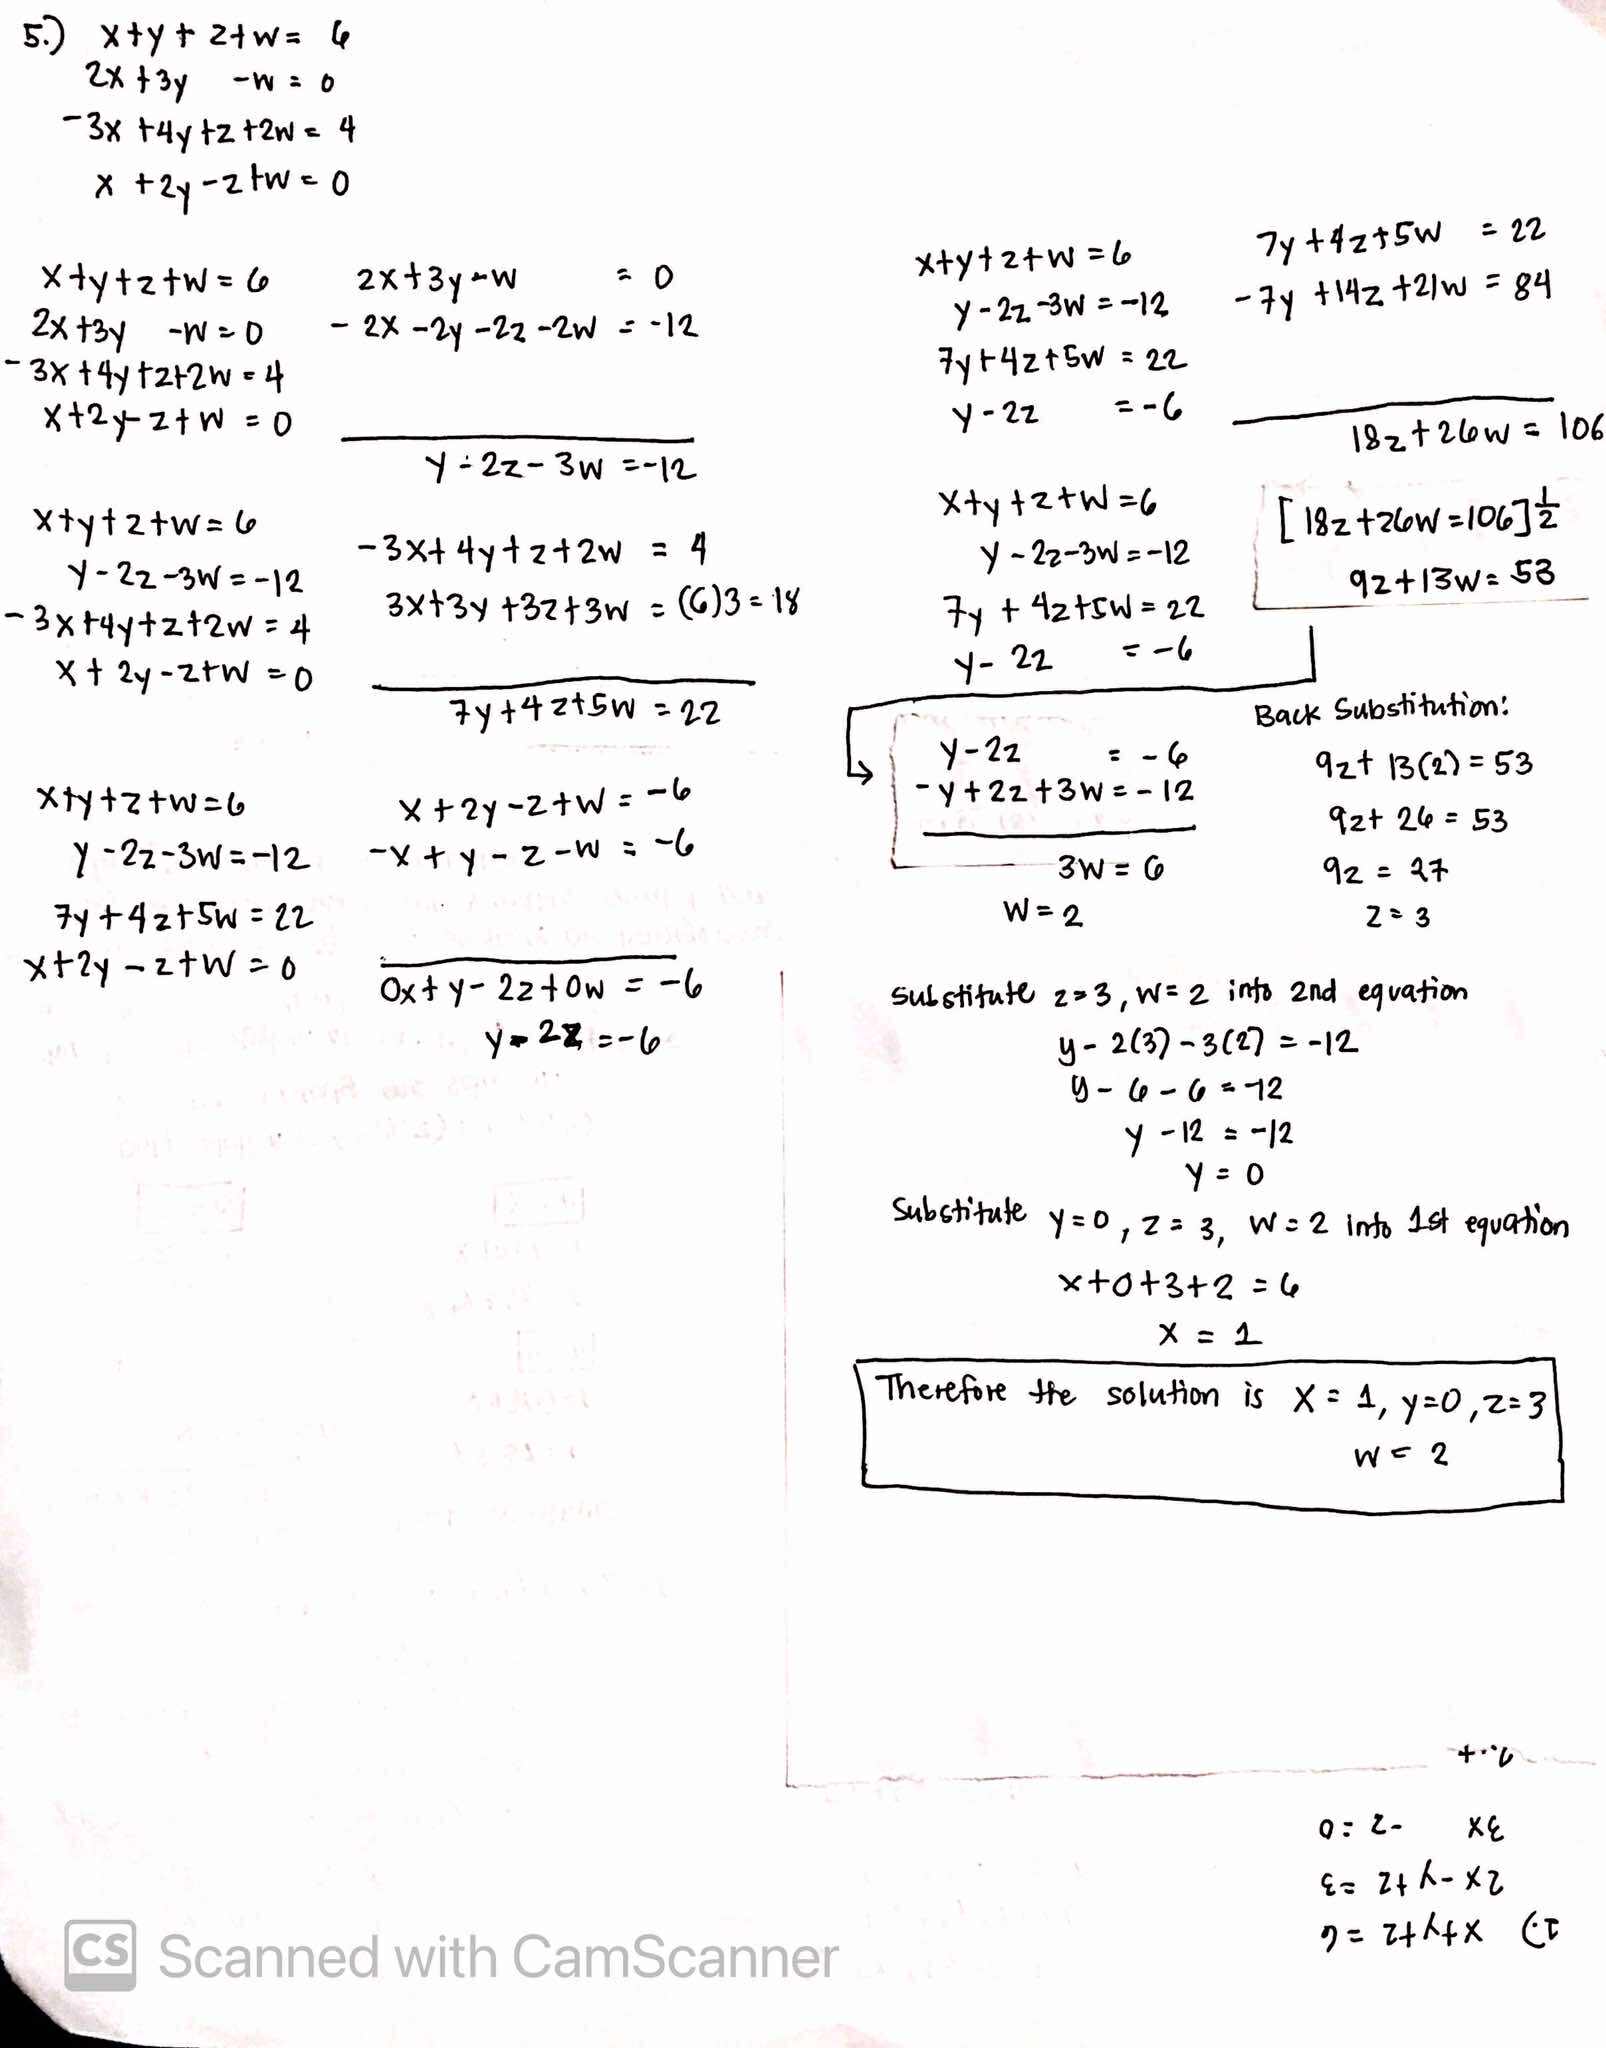 5.) x+y+z+w= 6
2x+3y -w=0
-3x+4y+z+2w=4
x+2y-z+w=0
x+y+z+w=6
2x+3y -w=0
-3x+4y+z+2w=4
x+2y-z+w=0
2x+3y-w =0
-2x-2y-2z-2w=-12
y-2z-3w=-12
x+y+z+w=6
y-2z-3w=-12
-3x+4y+z+2w=4
x+2y-z+w=0
-3x+4y+z+2w=4
3x+3y+3z+3w=(6)3=18
7y+4z+5w=22
x+y+z+w=6
y-2z-3w=-12
7y+4z+5w=22
x+2y-z+w=0
x+2y-z+w=-6
-x+y-z-w=-6
0x+y-2z+0w=-6
y-2z=-6
x+y+z+w=6
y-2z-3w=-12
7y+4z+5w=22
y-2z =-6
7y+4z+5w =22
-7y+14z+21w=84
18z+26w=106
x+y+z+w=6
y-2z-3w=-12
7y+4z+5w=22
y-2z =-6
[18z+26w=106]1/2
9z+13w=53
y-2z =-6
-y+2z+3w=-12
3w=6
w=2
Back Substitution:
9z+13(2)=53
9z+26=53
9z=27
z=3
substitute z=3, w=2 into 2nd equation
y-2(3)-3(2)=-12
y-6-6=-12
y-12=-12
y=0
Substitute y=0, z=3, w=2 into 1st equation
x+0+3+2=6
x=1
Therefore the solution is x=1, y=0, z=3
w=2
1.) x+y+z=6
2x-y+z=3
3x -z=0
CS Scanned with CamScanner